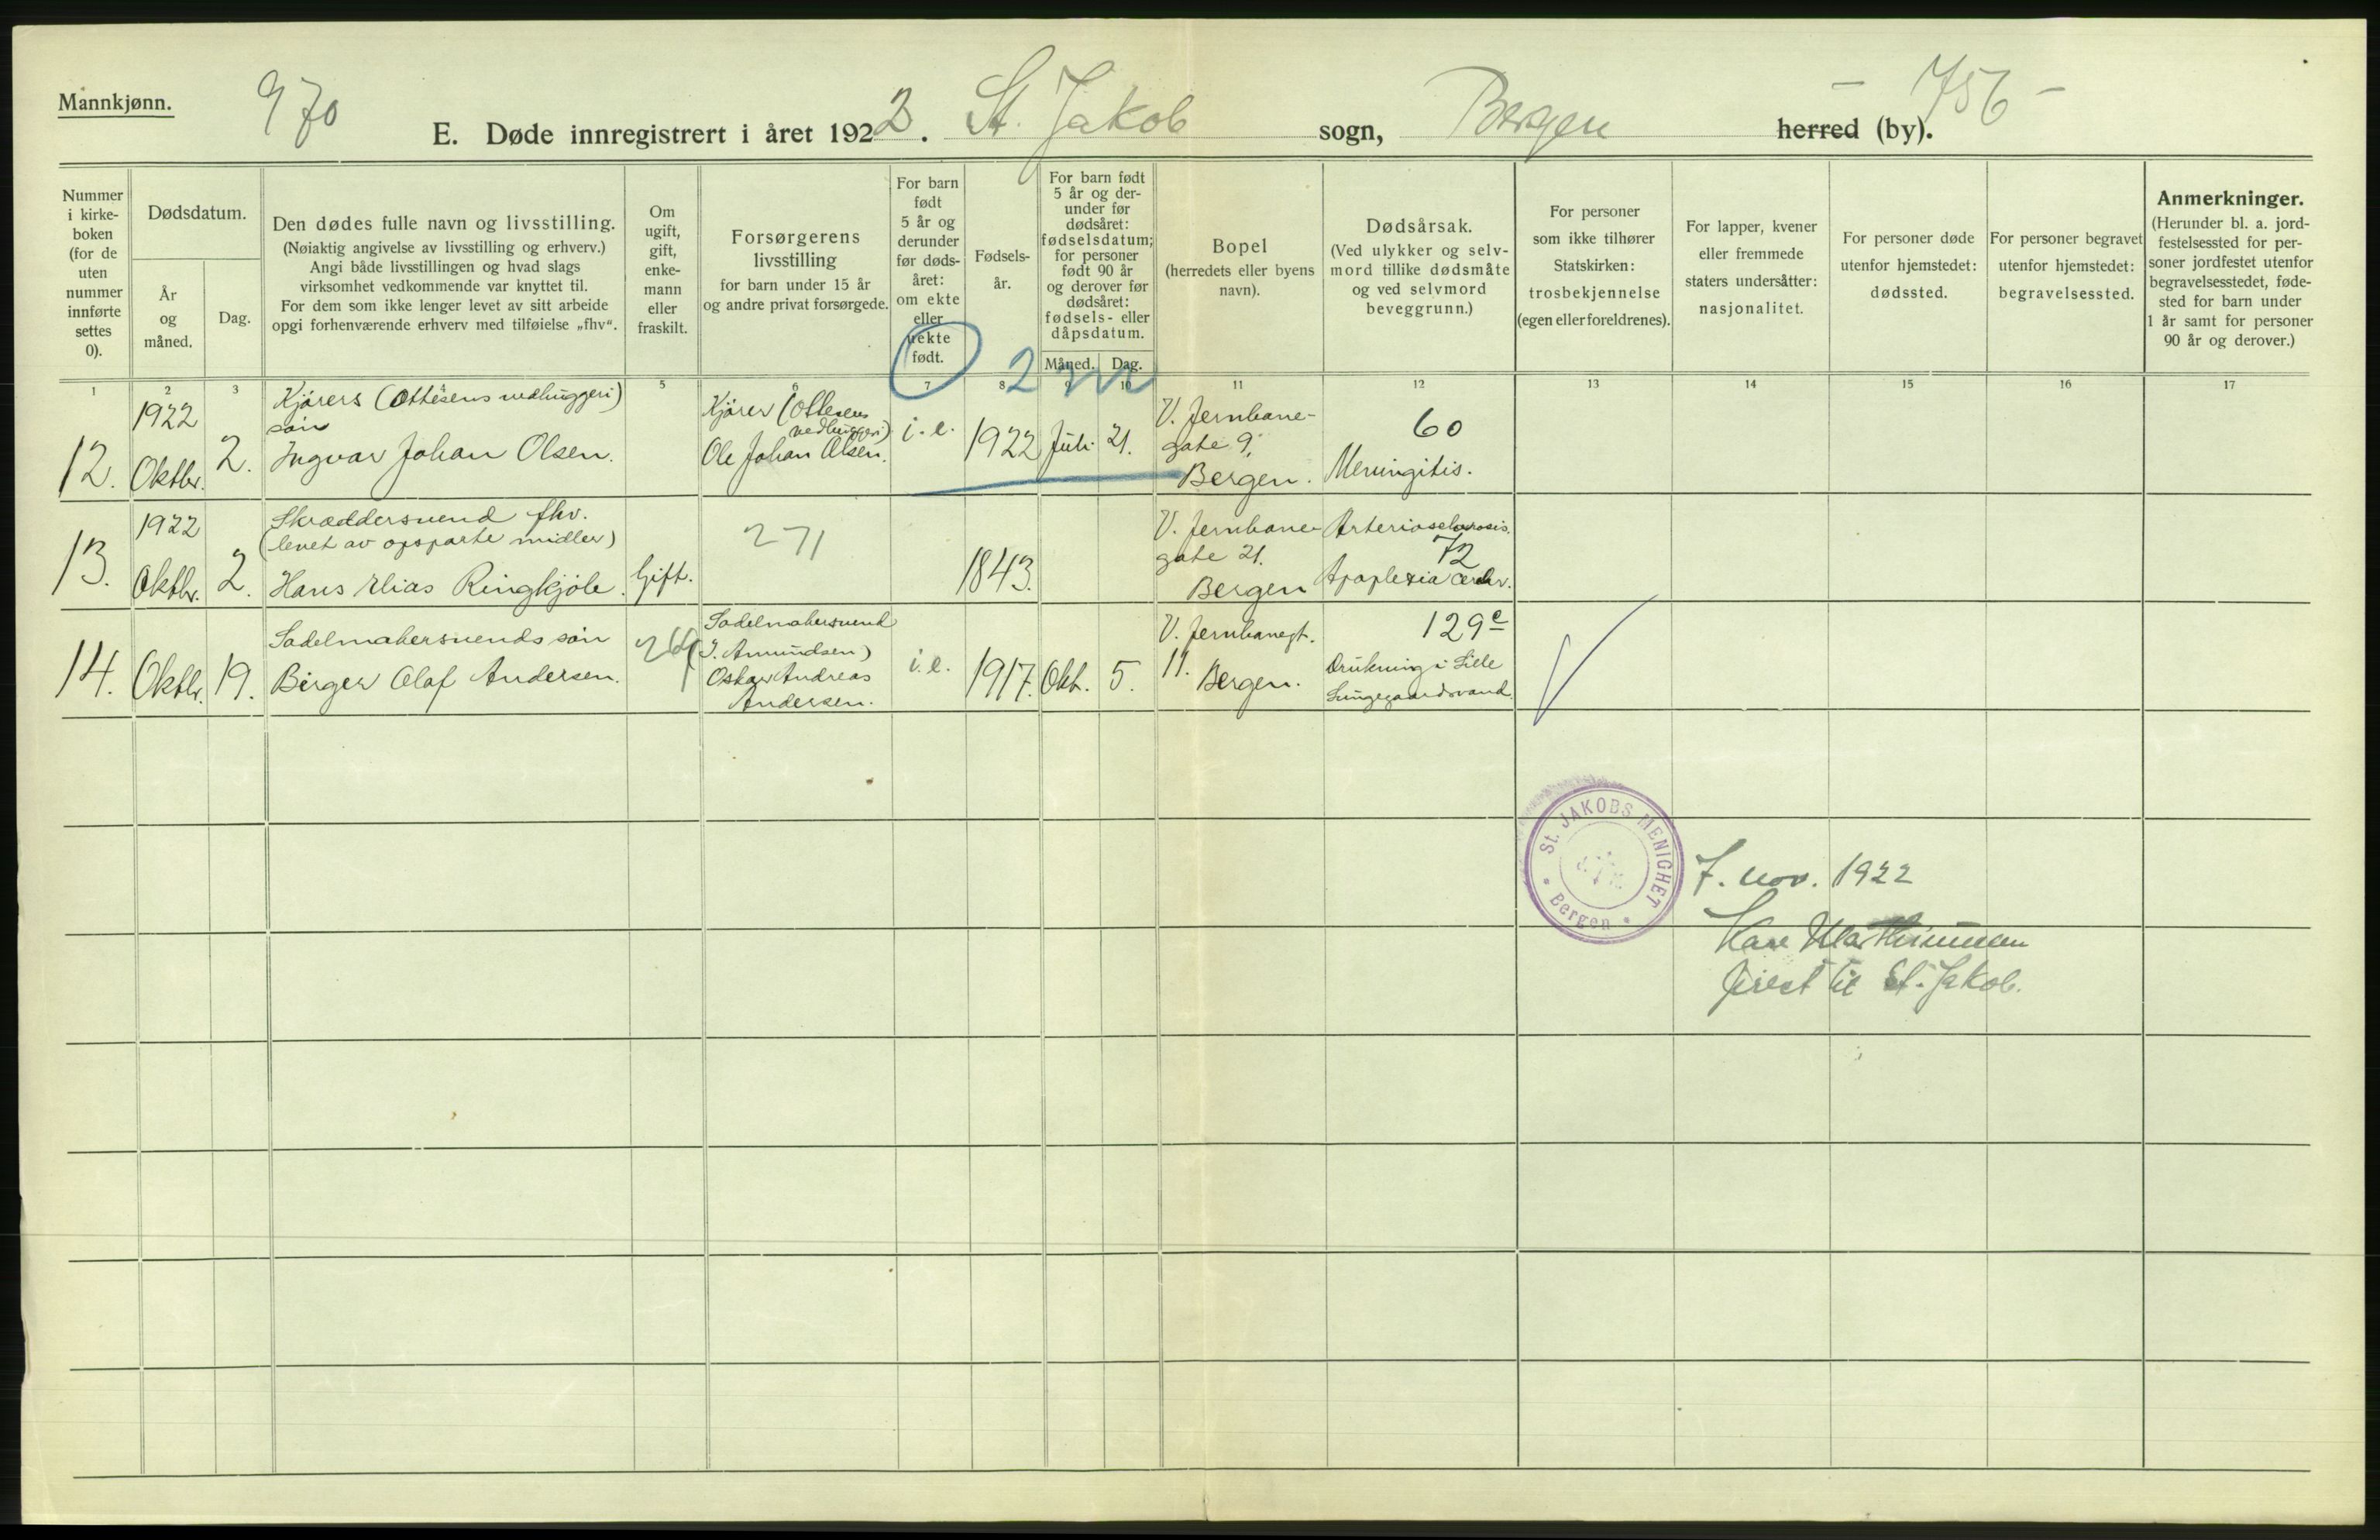 Mannkjønn.
970
- 756 -
E. Døde innregistrert i året 1922. St. Jakob sogn, Bergen herred (by).
Nummer
i kirke-
boken
(for de
uten
nummer
innførte
settes
0).
Dødsdatum.
År
og
måned.
Dag.
Den dødes fulle navn og livsstilling.
(Nøiaktig angivelse av livsstilling og erhverv.)
Angi både livsstillingen og hvad slags
virksomhet vedkommende var knyttet til.
For dem som ikke lenger levet av sitt arbeide
opgi forhenværende erhverv med tilføielse „fhv“.
Om
ugift,
gift,
enke-
mann
eller
fraskilt.
Forsørgerens
livsstilling
for barn under 15 år
og andre privat forsørgede.
For barn
født
5 år og
derunder
før døds-
året:
om ekte
eller
uekte
født.
Fødsels-
år.
For barn født
5 år og der-
under før
dødsåret:
fødselsdatum;
for personer
født 90 år
og derover før
dødsåret:
fødsels- eller
dåpsdatum.
Måned. Dag.
Bopel
(herredets eller byens
navn).
Dødsårsak.
(Ved ulykker og selv-
mord tillike dødsmåte
og ved selvmord
beveggrunn.)
For personer
som ikke tilhører
Statskirken:
trosbekjennelse
(egen eller foreldrenes).
For lapper, kvener
eller fremmede
staters undersåtter:
nasjonalitet.
For personer døde
utenfor hjemstedet:
dødssted.
For personer begravet
utenfor hjemstedet:
begravelsessted.
Anmerkninger.
(Herunder bl. a. jord-
festelsessted for per-
soner jordfestet utenfor
begravelsesstedet, føde-
sted for barn under
1 år samt for personer
90 år og derover.)
1 2 3 5 7 8 9 10 11 12 13 14 15 16 17
2 m
12.
1922
Oktbr.
2.
Kjørers (Ottesens vedhuggeri)
søn
Ingvar Johan Olsen.
Kjører (Ottesens
vedhuggeri)
Ole Johan Olsen.
i. e.
1922
Juli
21.
V. Jernbane-
gate 9,
Bergen.
60
Meningitis.
13.
1922
Oktbr.
2.
Skræddersvend fhv.
(levet av opsparte midler)
Hans Elias Ringkjøb.
Gift.
271
1843.
V. Jernbane-
gate 21.
Bergen
Arteriosclerosis.
72
Apoplexia cerebr.
14.
Oktbr.
19.
Sadelmakersvends søn
Birger Olaf Andersen.
Sadelmakersvend
(J. Amundsen)
Oskar Andreas
Andersen.
i. e.
1917.
Okt.
5.
V. Jernbanegt.
11. Bergen.
129c
Drukning i Lille
Lungegaardsvand.
St. JAKOBS MENIGHET
* Bergen *
7. nov. 1922
Marthinussen
prest til St. Jakob.